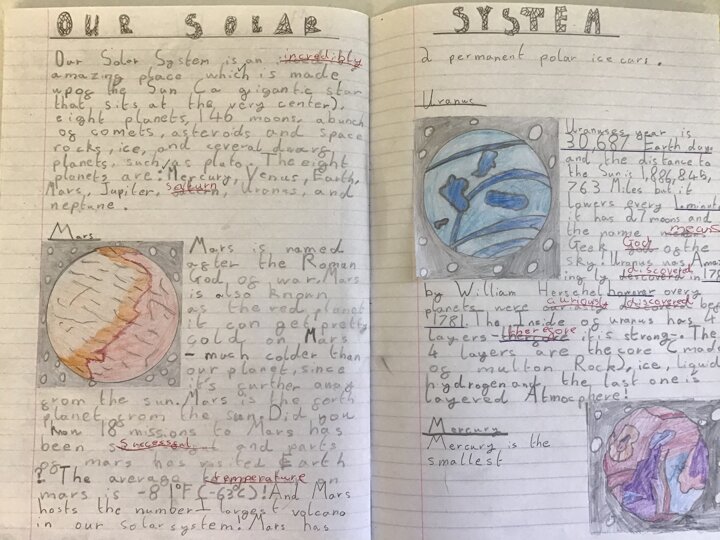 OUR SOLAR
Our Soler System is an incredibly
amazing place which is made
upog the Sun (a gigantic star
that sits at the very center),
eight planets, 146 moons, a bunch
og comets, asterods and space
rocks, ice, and ceveral dwarg
planets, such as pluto. The eight
planets are: Mercury, Venus, Earth,
Mars, Jupiter, saturn, Uranus, and
neptune.
Mars
Mars is named
agter the Roman
God og war. Mars
is also known
as the red planet
it can get pretty
cold on Mars
- much colder than
our planet, since
it's gurther away
grom the sun. Mars is the gorth
planet grom the sun. Did you
18 missions to Mars has
been successful and parts
og mars has visited Earth
? The average temperature on
mars is -81°F (-63°c)! And Mars
hosts the number 1 largest volcano
in our solar system! Mars has
SYSTEM
2 permanent polar ice cars.
Uranus
Uranuses year is
30,687 Earth days
and the distance to
the Sun is 1,886,845,
763 Miles but it
lowers every 1 minut
it has 27 moons and
the name means
Geek God og the
sky! Uranus was Amaz
ingly discovered in
by William Herschel however every
planets were curiously discovered
1781. The Inside og uranus has 4
layers - theregore it is strong. The
4 layers are the core (made
og multon Rock), ice, liquid
hydrogen and the last one is
layered Atmocphere!
Mercury
Mercury is the
smallest